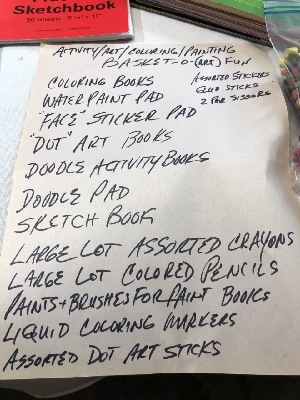 Sketchbook
50 Sheets
ACTIVITY/ART/COLORING/PAINTING
BASKET-O-(ART) FUN
COLORING BOOKS
WATER PAINT PAD
"FACE" STICKER PAD
"DOT" ART BOOKS
DOODLE ACTIVITY BOOKS
DOODLE PAD
SKETCH BOOK
ASSORTED STICKERS
GLUE STICKS
2 PAIR SISSORS
LARGE LOT ASSORTED CRAYONS
LARGE LOT COLORED PENCILS
PAINTS+BRUSHES FOR PAINT BOOKS
LIQUID COLORING MARKERS
ASSORTED DOT ART STICKS